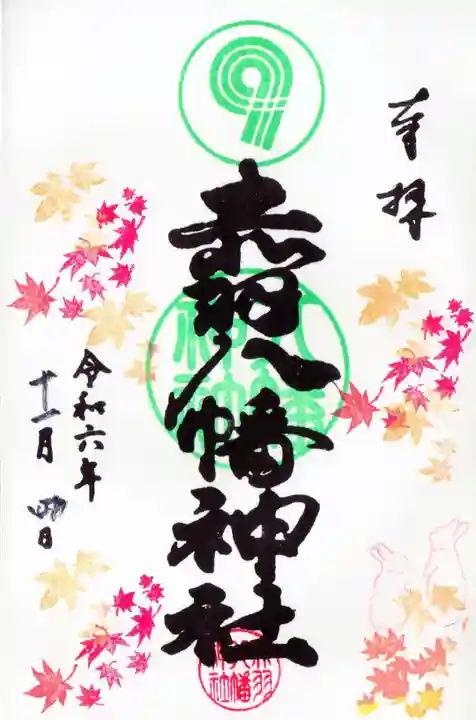 奉拝
赤羽八幡神社
令和六年
十一月四日
八幡
神社
赤羽
八幡
神社